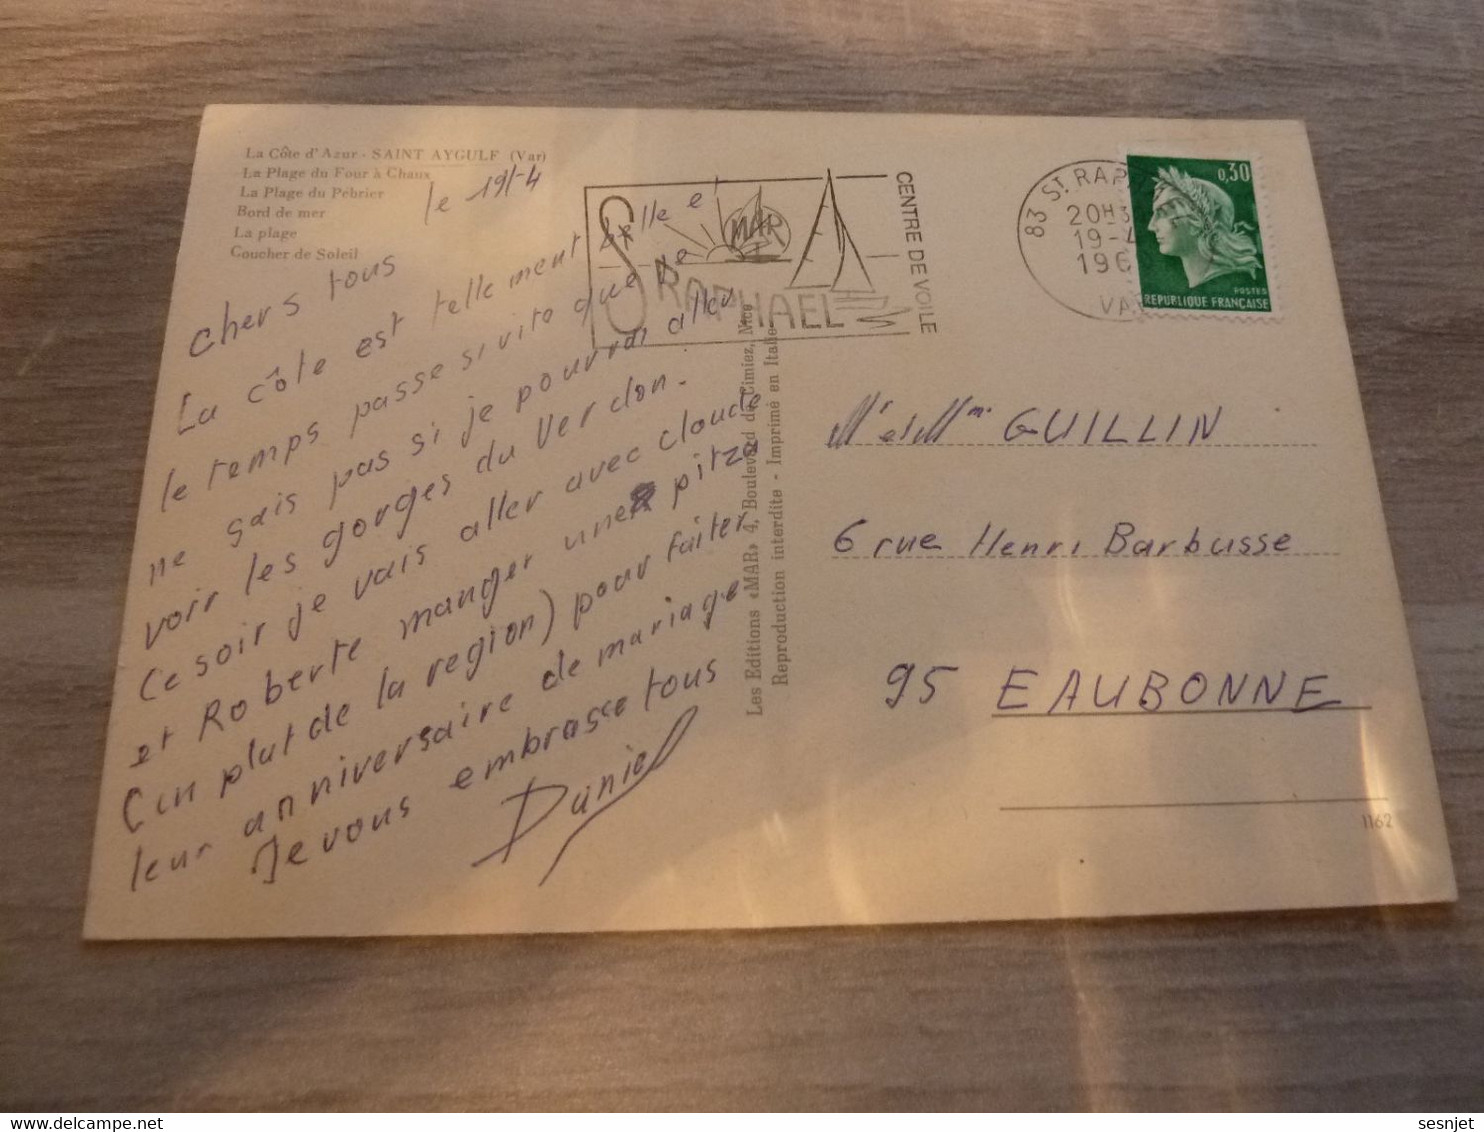 La Côte d'Azur - SAINT AYGULF (Var)
La Plage du Four à Chaux
La Plage du Pébrier
Bord de mer
La plage
Coucher de Soleil
le 19-4
chers tous
La côte est tellement belle e
le temps passe si vite que je
ne sais pas si je pourrai aller
voir les gorges du Verdon.
Ce soir je vais aller avec Claude
et Roberte manger une pitza
(un plat de la region) pour faiter
leur anniversaire de mariage
Je vous embrasse tous
Daniel
St RAPHAEL
MAR
CENTRE DE VOILE
83 St. RAP
20H3
19-4
196
VA
0,30
POSTES
REPUBLIQUE FRANÇAISE
Les Editions «MAR» 4, Boulevard de Cimiez, Nice
Reproduction interdite - Imprimé en Italie
Mr et Mme GUILLIN
6 rue Henri Barbusse
95 EAUBONNE
1162
sesnjet